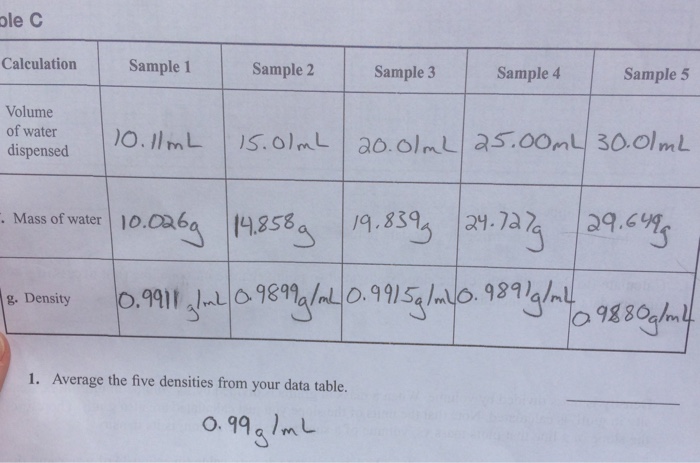 ole C
Calculation Sample 1 Sample 2 Sample 3 Sample 4 Sample 5
Volume
of water
dispensed
10.11mL 15.01mL 20.01mL 25.00mL 30.01mL
. Mass of water 10.026g 14.858g 19.839g 24.727g 29.649g
g. Density 0.9911 g/mL 0.9899g/mL 0.9915g/mL 0.9891g/mL 0.9880g/mL
1. Average the five densities from your data table.
0.99g/mL